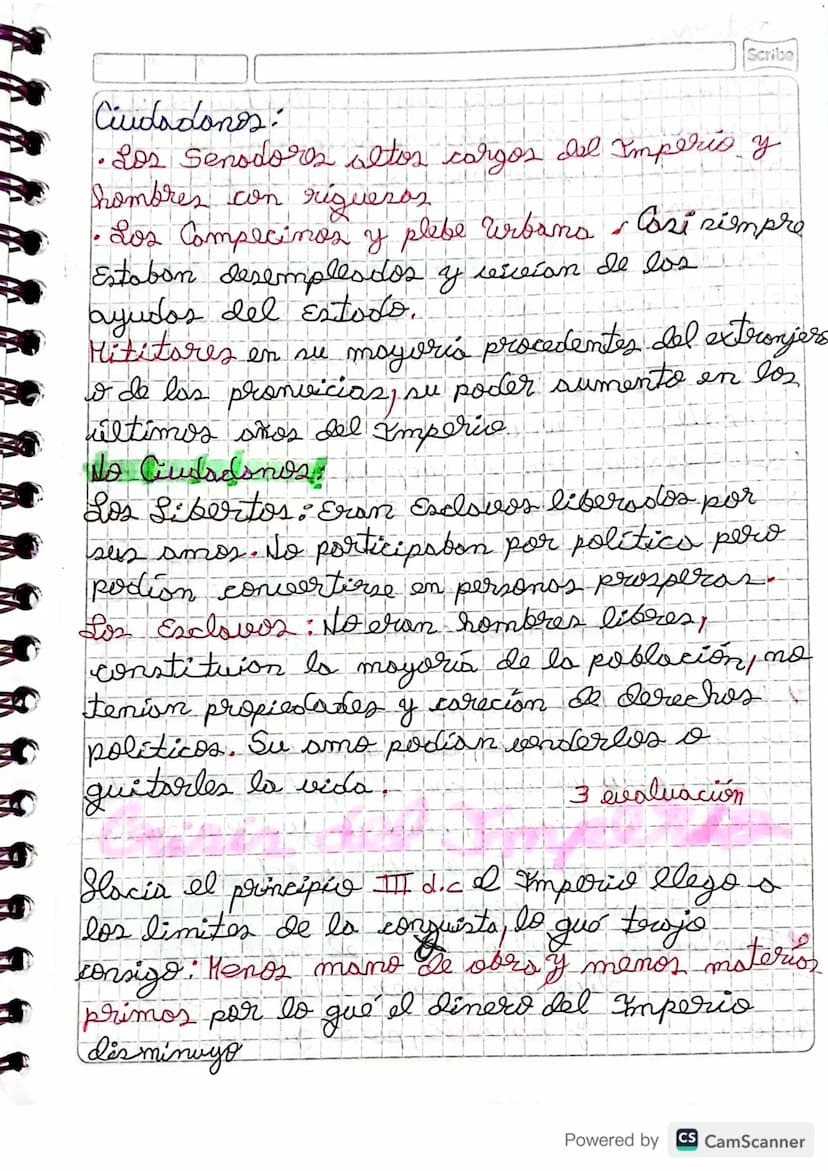 Scribe
Ciudadanos:
• Los Senadores altos cargos del Imperio y
hombres con riquezas
• Los Campecinos y plebe Urbana , Casi siempre
Estaban desempleados y vivían de las
ayudas del Estado.
Militares en su mayoría procedentes del extranjero
o de las pronvicias, su poder aumento en los
últimos años del Imperio
No Ciudadanos:
Los Libertos: Eran Esclavos liberados por
sus amos. No participaban por política pero
podían convertirse en personas prosperas.
Los Esclavos: No eran hombres libres,
constituían la mayoría de la población, no
tenían propiedades y carecían de derechos
políticos. Su amo podían venderlos o
quitarles la vida.
3 evaluación
Crisis del Imperio
Hacia el principio III d.c el Imperio llego a
los limites de la conquista, lo qué trajo
consigo: Menos mano de obra y menos materias
primas por lo qué el dinero del Imperio
disminuyo
Powered by CS CamScanner